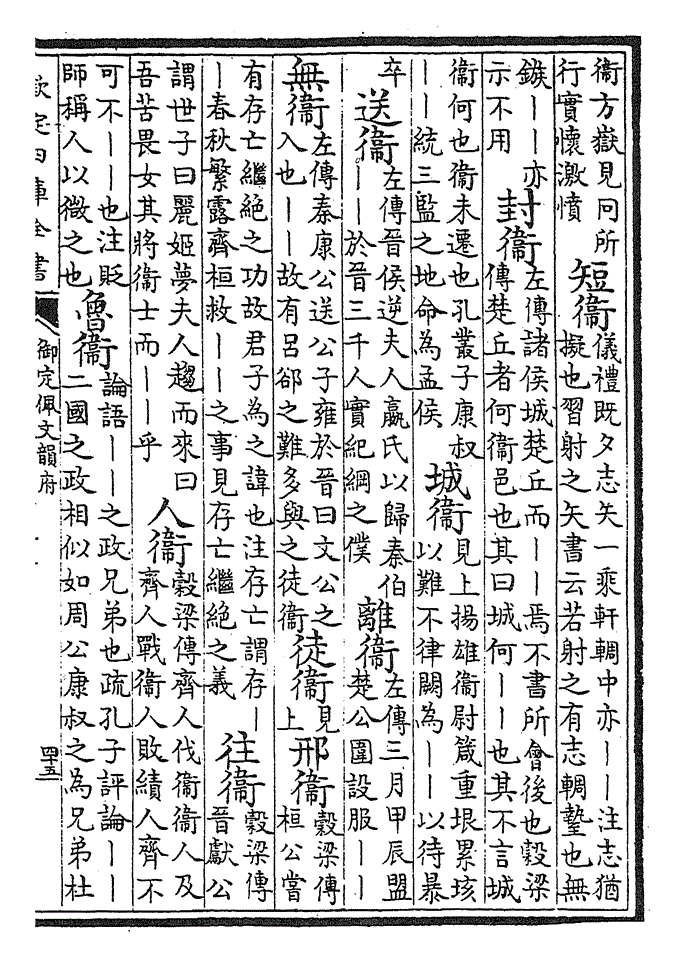 衞方嶽見同所
行實懷激憤
短衞
儀禮既夕志矢一乘軒輖中亦――注志猶
擬也習射之矢書云若射之有志輖摯也無
鏃――亦
示不用
封衞
左傳諸侯城楚丘而――焉不書所會後也穀梁
傳楚丘者何衞邑也其曰城何――也其不言城
衞何也衞未遷也孔叢子康叔
――統三監之地命為孟侯
城衞
見上揚雄衞尉箴重垠累垓
以難不律闕為――以待暴
卒
送衞
左傳晉侯逆夫人嬴氏以歸秦伯
――於晉三千人實紀綱之僕
離衞
左傳三月甲辰盟
楚公圍設服――
無衞
左傳秦康公送公子雍於晉曰文公之
入也――故有呂郤之難多與之徒衞
徒衞
見
上
邢衞
穀梁傳
桓公嘗
有存亡繼絶之功故君子為之諱也注存亡謂存―
―春秋繁露齊桓救――之事見存亡繼絶之義
往衞
穀梁傳
晉獻公
謂世子曰麗姬夢夫人趨而來曰
吾苦畏女其將衞士而――乎
人衞
穀梁傳齊人伐衞衞人及
齊人戰衞人敗績人齊不
可不――也注貶
師稱人以微之也
魯衞
論語――之政兄弟也疏孔子評論――
二國之政相似如周公康叔之為兄弟杜
欽定四庫全書
御定佩文韻府
四十五